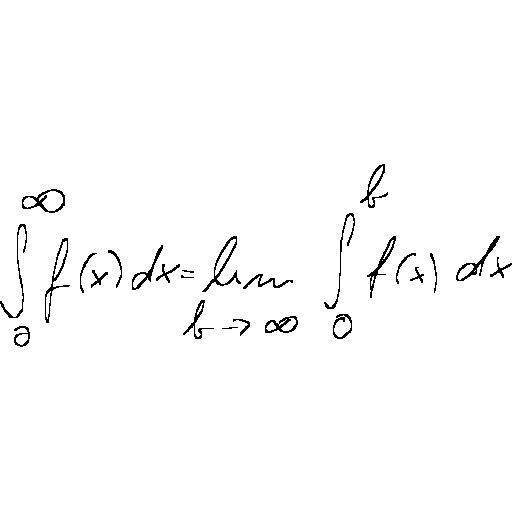 \int_{a}^{\infty} f(x) dx = \lim_{b \to \infty} \int_{0}^{b} f(x) dx